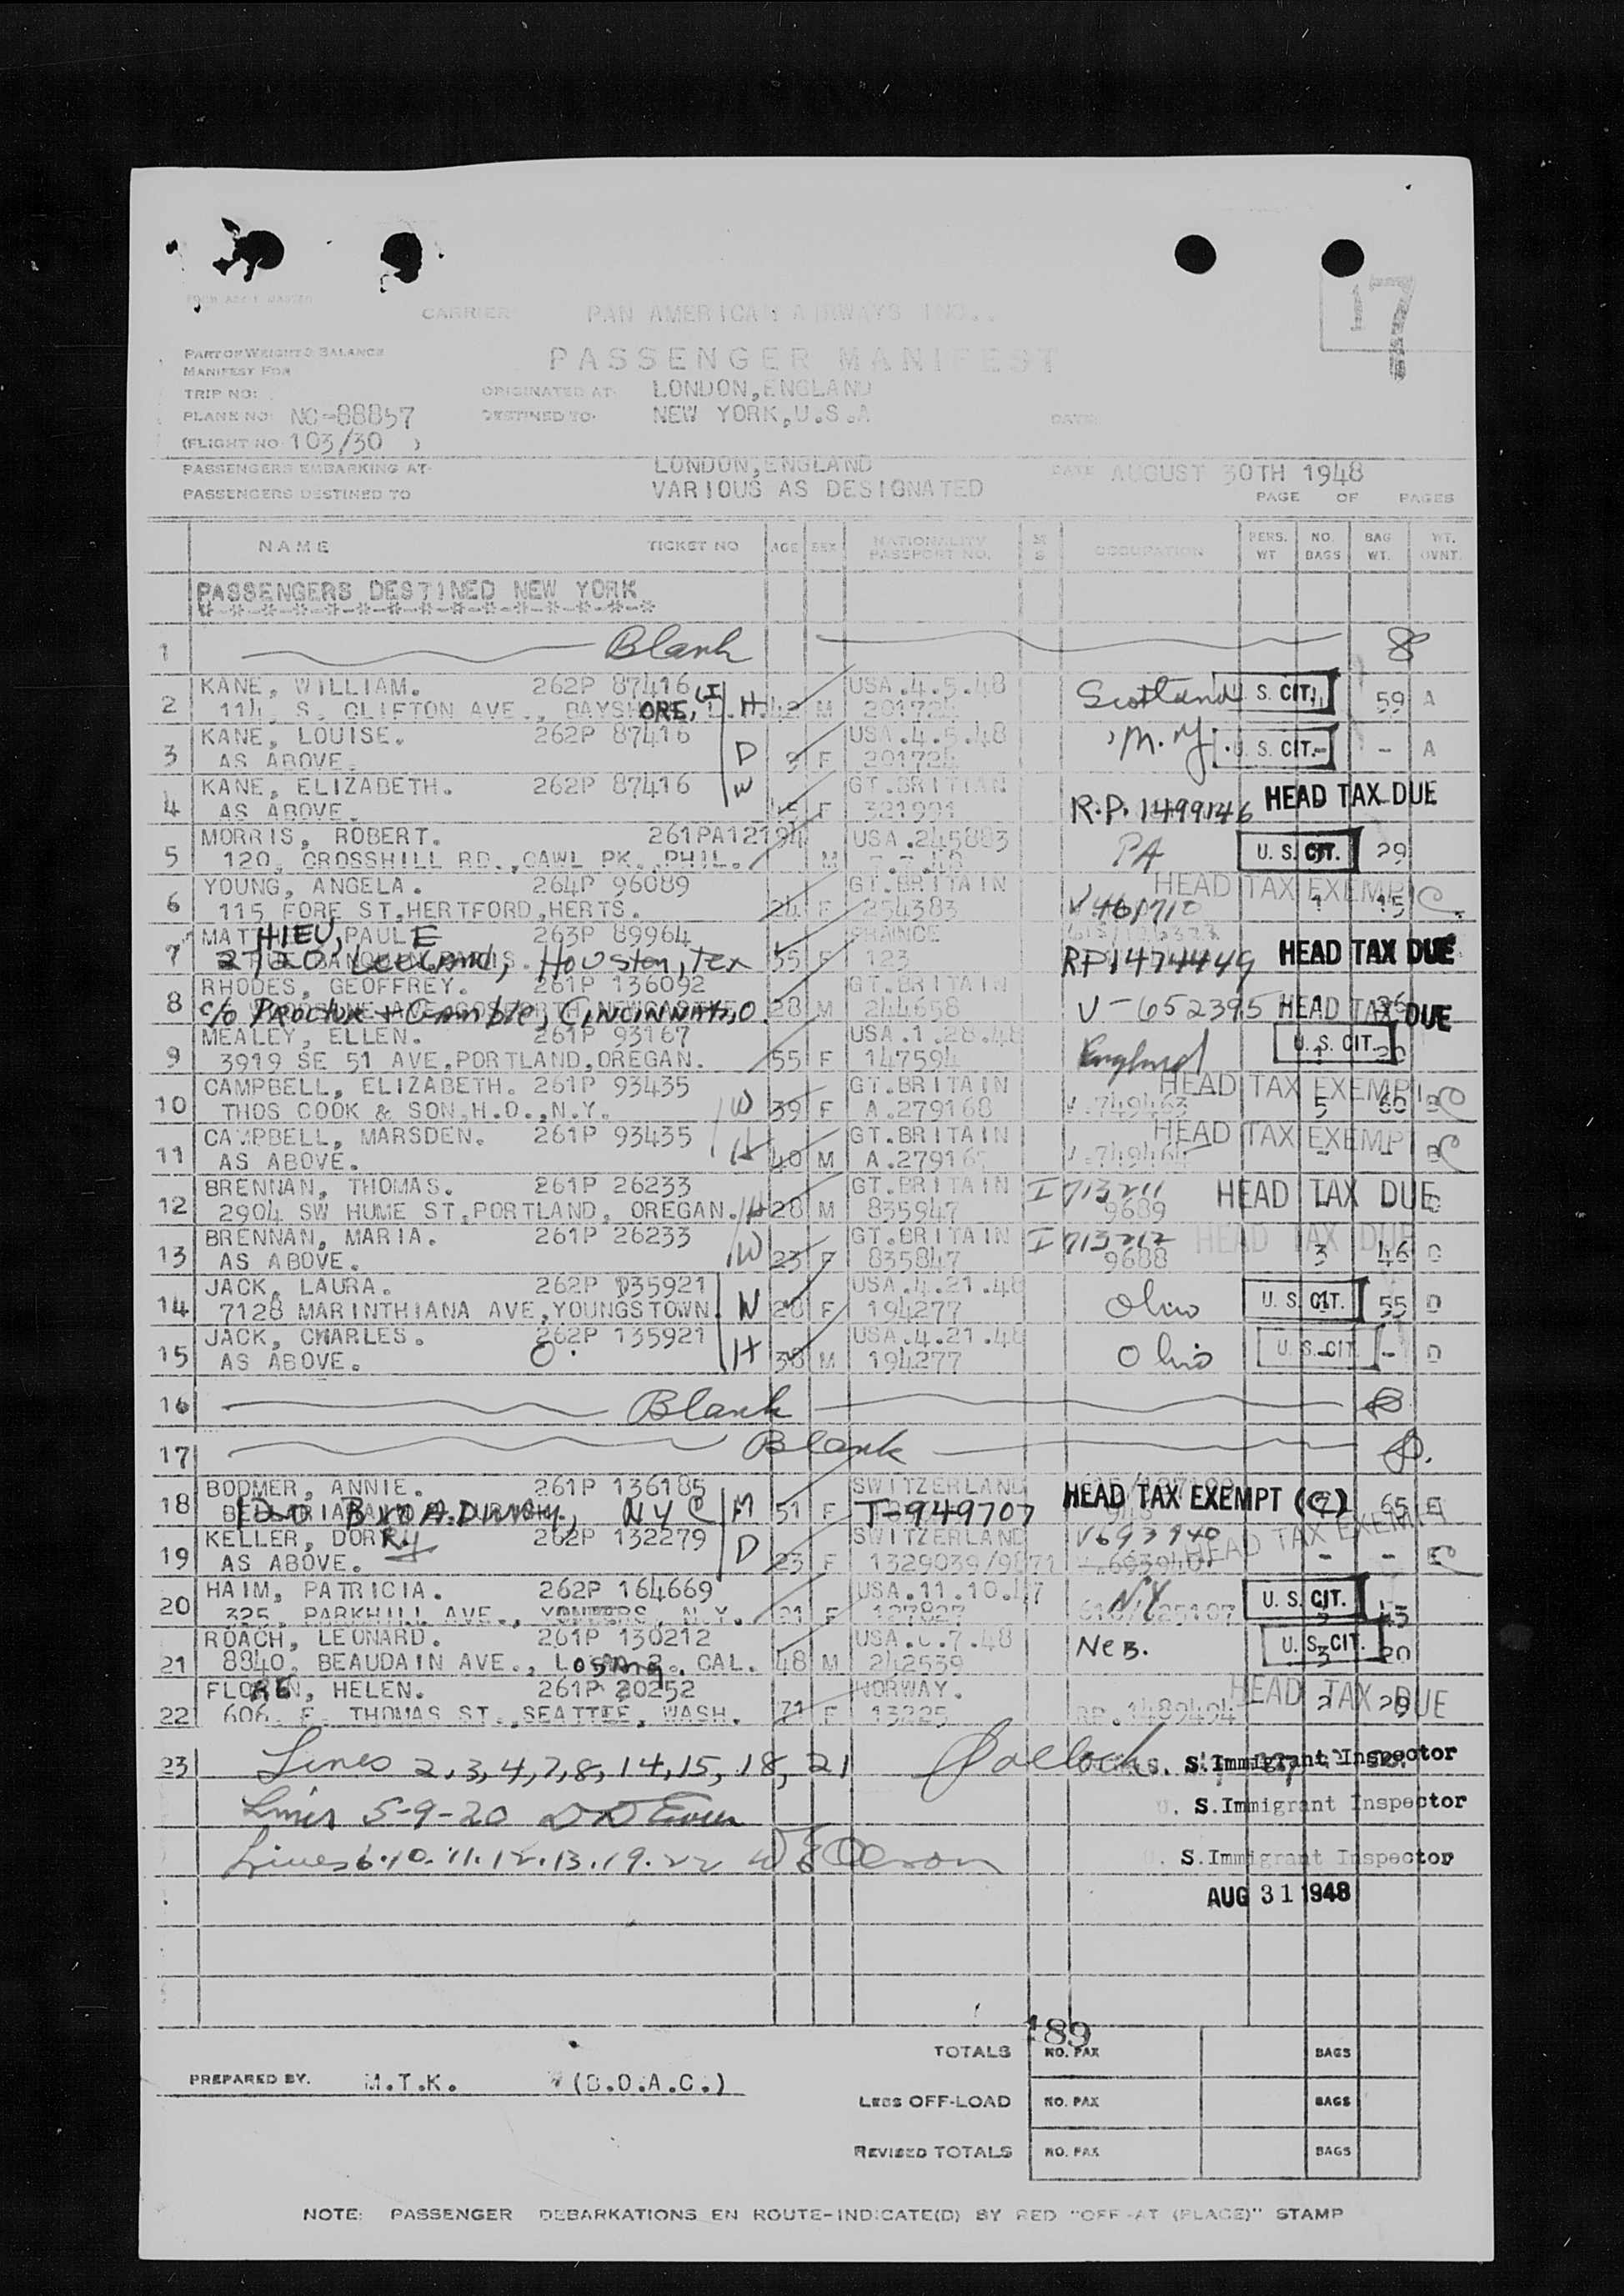 17
FORM
CARRIER PAN AMERICAN AIRWAYS INC..
PART OF WEIGHT & BALANCE
MANIFEST FOR
PASSENGER MANIFEST
TRIP NO: ORIGINATED AT: LONDON,ENGLAND
PLANE NO: NC-88857 DESTINED TO: NEW YORK,U.S.A DATE
(FLIGHT NO 103/30 )
PASSENGERS EMBARKING AT- LONDON,ENGLAND DATE AUGUST 30TH 1948
PASSENGERS DESTINED TO VARIOUS AS DESIGNATED PAGE OF PAGES
NAME TICKET NO AGE SEX NATIONALITY PASSPORT NO. M S OCCUPATION PERS. WT NO. BAGS BAG WT. WT. OVNT.
PASSENGERS DESTINED NEW YORK
*-*-*-*-*-*-*-*-*-*-*-*-*-*-*
1 Blank
2 KANE, WILLIAM. 262P 87416 USA.4.5.48
114, S. CLIFTON AVE., BAYSHORE, LI H 42 M Scotland U. S. CIT. 59 A
3 KANE, LOUISE. 262P 87416 USA.4.5.48
AS ABOVE. D 9 F 201724 N.Y U. S. CIT. - A
4 KANE, ELIZABETH. 262P 87416 W GT.BRITIAN
AS ABOVE. 45 F 321991 R.P. 1499146 HEAD TAX DUE
5 MORRIS, ROBERT. 261PA12194 USA.245883
120, CROSSHILL RD.,OAWL PK.,PHIL. M PA U. S. CIT. 29
6 YOUNG, ANGELA. 264P 96089 GT.BRITAIN HEAD TAX EXEMPT C
115 FORE ST,HERTFORD,HERTS. 24 F 254383 V461710 1 15
7 MATHIEU, PAULE 263P 89964 FRANCE
2720 Leeland, Houston, Tex 55 F 123 RP1474449 HEAD TAX DUE
8 RHODES, GEOFFREY. 261P 136092 GT.BRITAIN
c/o Proctor + Gamble, CINCINNATI, O. 28 M 244658 V-652395 HEAD TAX DUE
9 MEALEY, ELLEN. 261P 93167 USA.1.28.48
3919 SE 51 AVE,PORTLAND,OREGAN. 55 F 147594 England U. S. CIT.
10 CAMPBELL, ELIZABETH. 261P 93435 GT.BRITAIN HEAD TAX EXEMPT
THOS COOK & SON,H.O.,N.Y. W 39 F A.279168 V.749463 5 60 C
11 CAMPBELL, MARSDEN. 261P 93435 GT.BRITAIN HEAD TAX EXEMPT
AS ABOVE. H 40 M V.749464 - - C
12 BRENNAN, THOMAS. 261P 26233 GT.BRITAIN I 713211 HEAD TAX DUE
2904 SW HUME ST,PORTLAND, OREGAN. H 28 M 835947 9689
13 BRENNAN, MARIA. 261P 26233 GT.BRITAIN I 713212 HEAD TAX DUE
AS ABOVE. W 23 F 835847 9688 3 46
14 JACK, LAURA. 262P 135921 USA.4.21.48
7128 MARINTHIANA AVE,YOUNGSTOWN. W 28 F 194277 Ohio U. S. CIT. 55 D
15 JACK, CHARLES. 262P 135921 USA.4.21.48
AS ABOVE. O. H 38 M 194277 Ohio U. S. CIT. - D
16 Blank
17 Blank
18 BODMER, ANNIE. 261P 136185 SWITZERLAND
BROADWAY, NYC M 51 F T-949707 HEAD TAX EXEMPT (C) 65
19 KELLER, DORRY 262P 132279 SWITZERLAND V693940 HEAD TAX EXEMPT
AS ABOVE. D 23 F - - C
20 HAIM, PATRICIA. 262P 164669 USA.11.10.47
325, PARKHILL AVE., YONKERS, N.Y. F 127827 NY U. S. CIT.
21 ROACH, LEONARD. 261P 130212
8840, BEAUDAIN AVE., Los Ang. CAL. 48 M 242539 NEB. U. S. CIT. 3 20
22 FLOREN, HELEN. 261P 20252 NORWAY. HEAD TAX DUE
606. E. THOMAS ST.,SEATTLE, WASH. 71 F 13225 RP.1489494 2
23 Lines 2,3,4,7,8,14,15,18,21 U. S.Immigrant Inspector
Lines 5-9-20 U. S.Immigrant Inspector
Lines 6.10.11.12.13.19.22 U. S.Immigrant Inspector
AUG 31 1948
189
TOTALS NO. PAX BAGS
PREPARED BY. M.T.K. (B.O.A.C.)
LESS OFF-LOAD NO. PAX BAGS
REVISED TOTALS NO. PAX BAGS
NOTE: PASSENGER DEBARKATIONS EN ROUTE-INDICATE(D) BY RED "OFF-AT (PLACE)" STAMP